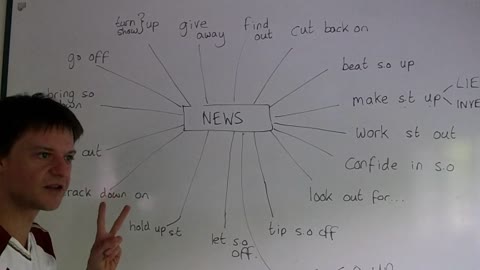 turn } up
show
give
away
find
out
cut back on
go off
beat s.o up
bring so
make s.t up
LIE
INVE
NEWS
work st out
cut
confide in s.o
rack down on
look out for...
hold up st
let s.o
off.
tip s.o off